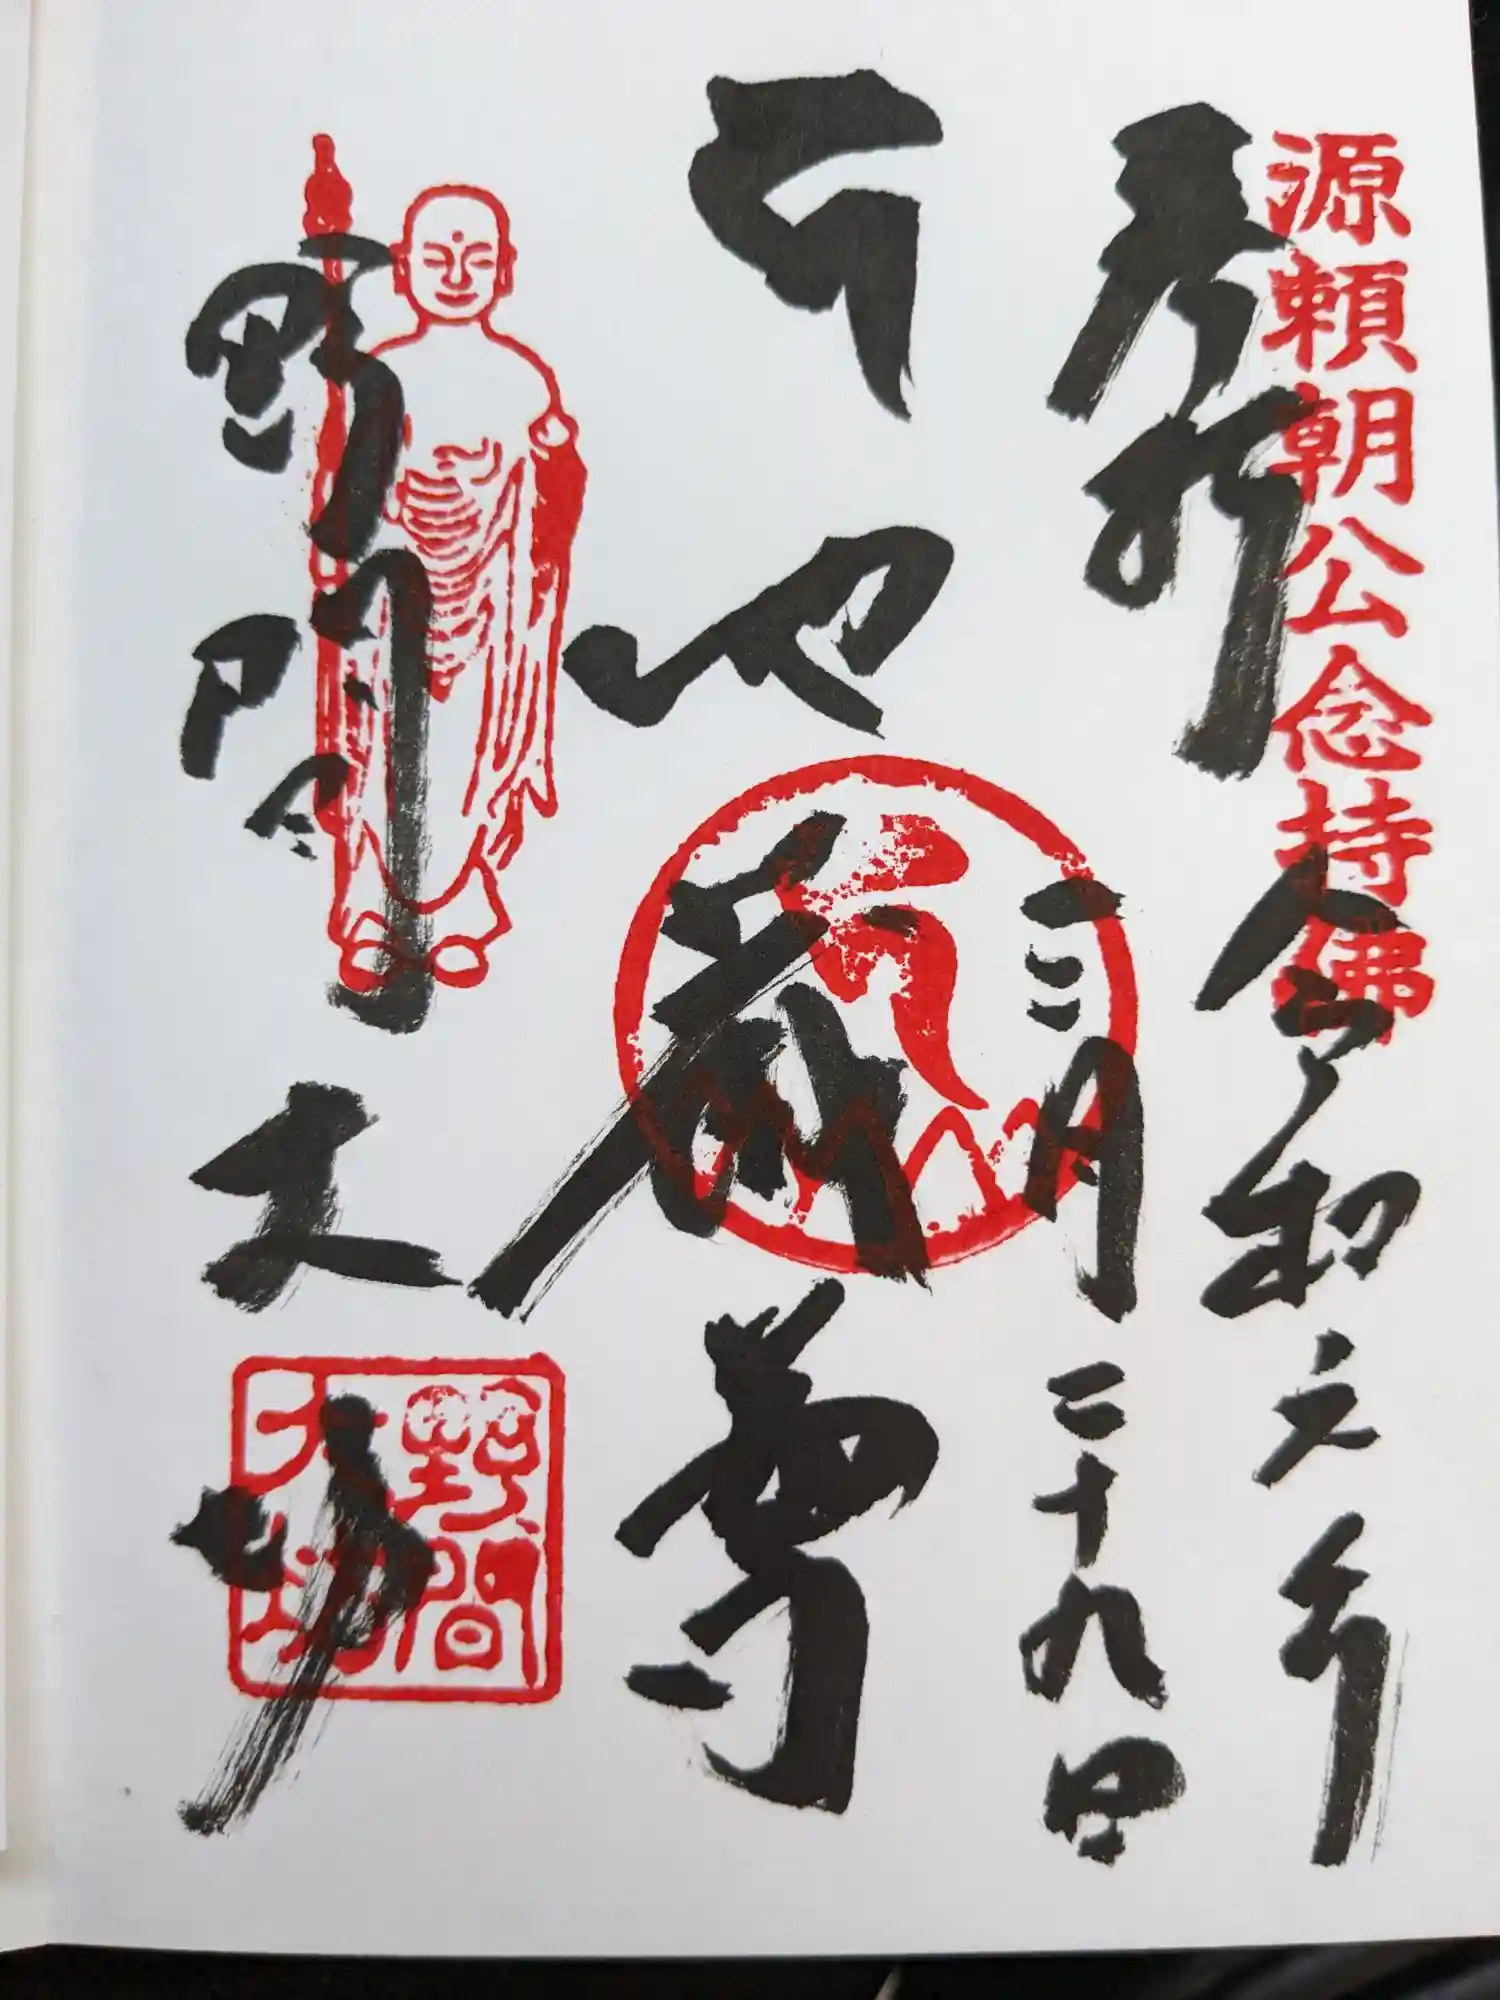 源頼朝公念持佛
奉拝
令和六年
三月二十九日
地蔵尊
野間大坊
野間
大坊